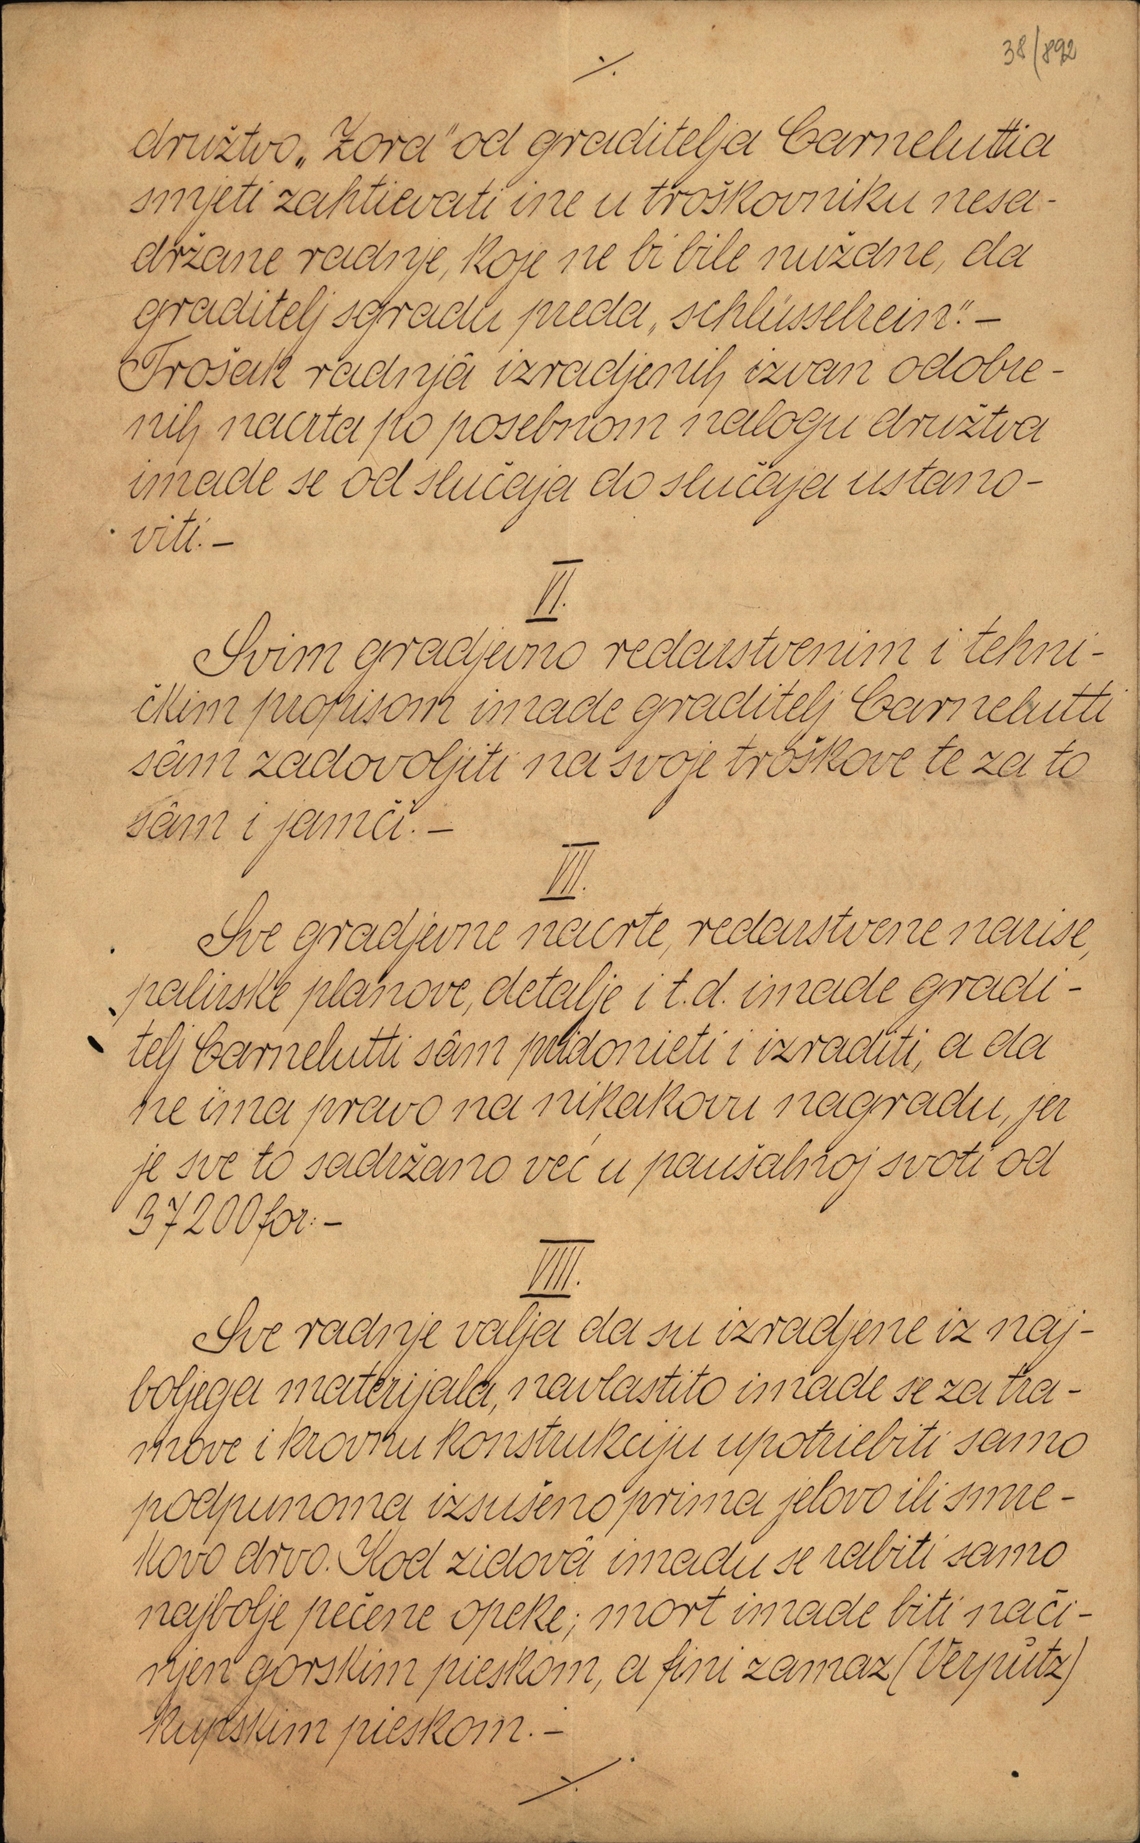 38/892
./.
družtvo „Zora" od graditelja Carneluttia
smjeti zahtievati ine u troškovniku nesa-
držane radnje, koje ne bi bile nuždne, da
graditelj sgradu preda „schlüsselrein". –
Trošak radnjâ izradjenih izvan odobre-
nih nacrta po posebnom nalogu družtva
imade se od slučaja do slučaja ustano-
viti. –
VI.
Svim gradjevno redarstvenim i tehni-
čkim propisom imade graditelj Carnelutti
sâm zadovoljiti na svoje troškove te za to
sâm i jamči. –
VII.
Sve gradjevne nacrte, redarstvene narise,
palirske planove, detalje i t.d. imade gradi-
telj Carnelutti sâm pridonieti i izraditi, a da
ne ima pravo na nikakovu nagradu, jer
je sve to sadržano već u paušalnoj svoti od
37200 for. –
VIII.
Sve radnje valja da su izradjene iz naj-
boljega materijala, navlastito imade se za tra-
move i krovnu konstrukciju upotriebiti samo
podpunoma izsušeno prima jelovo ili smre-
kovo drvo. Kod zidovâ imadu se rabiti samo
najbolje pečene opeke; mort imade biti nači-
njen gorskim pieskom, a fini zamaz (Verputz)
kupskim pieskom. –
./.